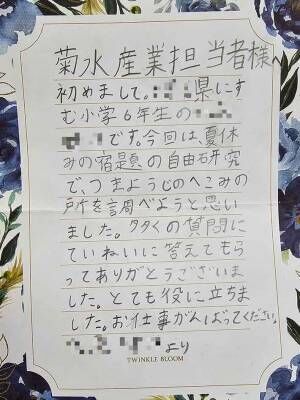 菊水産業担当者様へ
初めまして。県にす
む小学6年生の
です。今回は、夏休
みの宿題の自由研究
で、つまようじのへこみの
所を調べようと思い
ました。多くの質問に
ていねいに答えてもら
ってありがとうございま
した。とても役に立ちま
した。お仕事がんばってください。
より
TWINKLE BLOOM